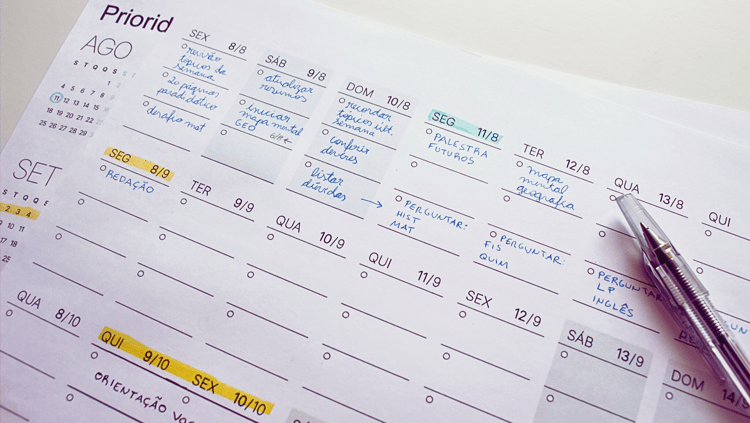 Priorid
AGO
S T Q Q S
4 5 6 7 8
11 12 13 14 15
18 19 20 21 22
25 26 27 28 29
SEX 8/8
revisão
tópicos da
semana
20 páginas
paradidático
desafio mat
SÁB 9/8
atualizar
resumos
iniciar
mapa mental
GEO
DOM 10/8
recordar
tópicos últ.
semana
conferir
deveres
listar
dúvidas →
SEG 11/8
PALESTRA
FUTUROS
PERGUNTAR:
HIST
MAT
TER 12/8
mapa
mental
geografia
PERGUNTAR:
FIS
QUIM
QUA 13/8
PERGUNTAR
LP
INGLÊS
QUI
SET
S T Q Q
2 3 4
9 10 11
16 17 18
25
SEG 8/9
REDAÇÃO
TER 9/9
QUA 10/9
QUI 11/9
SEX 12/9
SÁB 13/9
DOM 14/9
QUA 8/10
QUI 9/10
SEX 10/10
ORIENTAÇÃO VOC